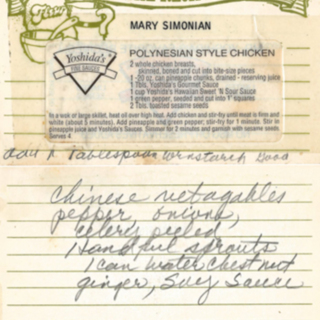 MARY SIMONIAN
Yoshida's
FINE SAUCES
POLYNESIAN STYLE CHICKEN
2 whole chicken breasts,
skinned, boned and cut into bite-size pieces
1 -20 oz. can pineapple chunks, drained - reserving juice
1 Tbls. Yoshida's Gourmet Sauce
1 cup Yoshida's Hawaiian Sweet 'N Sour Sauce
1 green pepper, seeded and cut into 1" squares
2 Tbls. toasted sesame seeds
In a wok or large skillet, heat oil over high heat. Add chicken and stir-fry until meat is firm and
white (about 3 minutes). Add pineapple and green pepper; stir-fry for 1 minute. Stir in
pineapple juice and Yoshida's Sauces. Simmer for 2 minutes and garnish with sesame seeds.
Serves 4
add 1 Tablespoon cornstarch
Chinese vetagables
pepper, onions,
celery peeled
1 Handful sprouts
1 can water chestnut
ginger, Suey Sauce